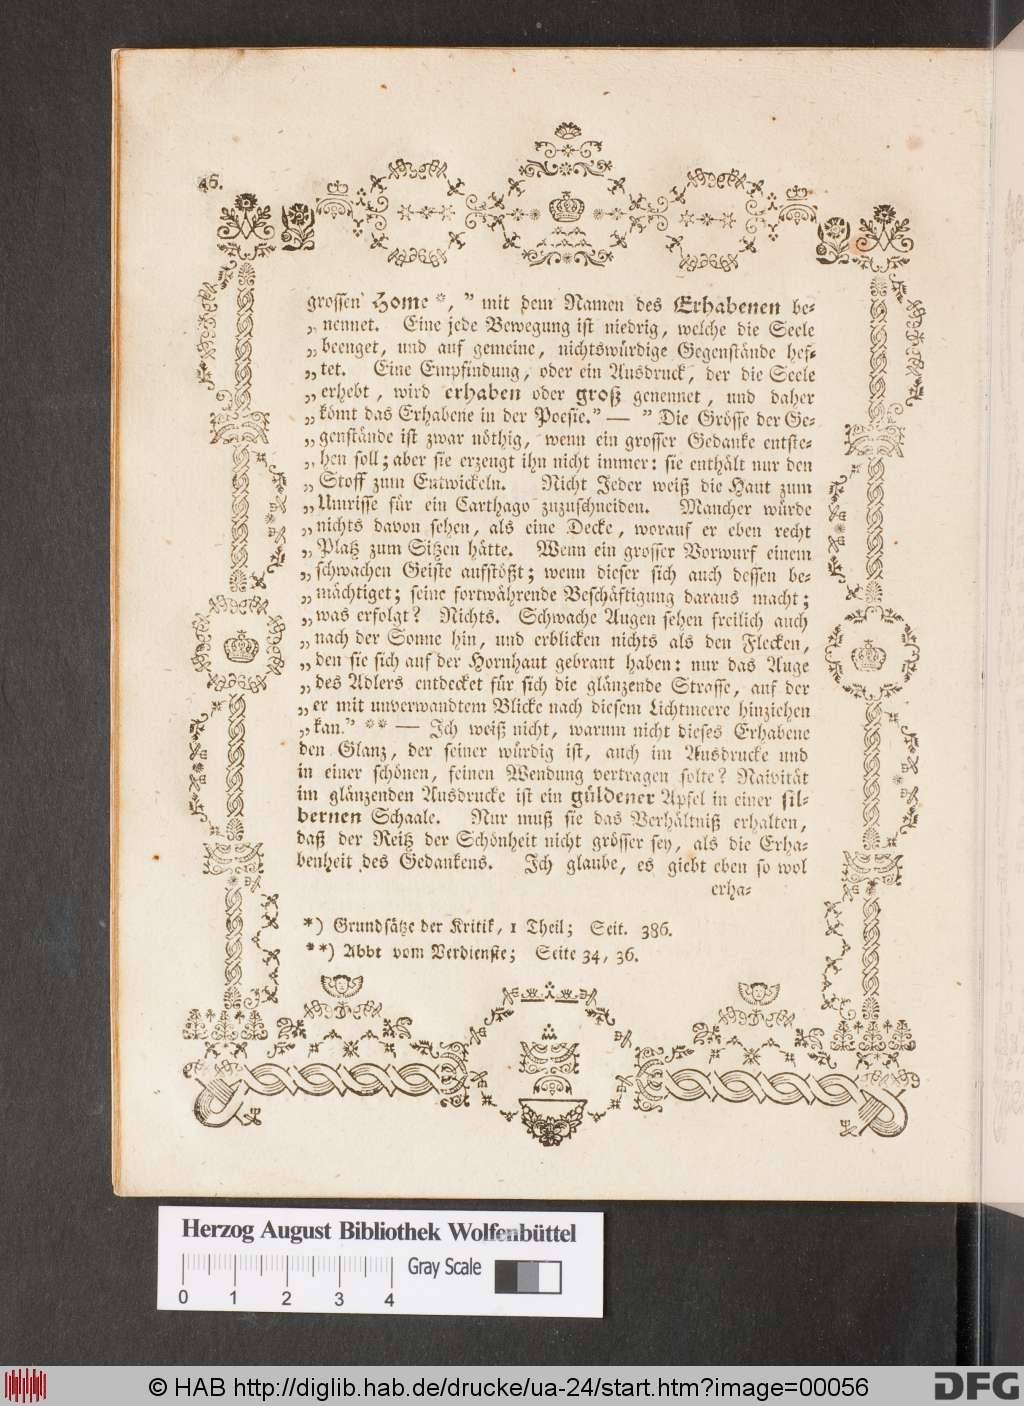 46.
grossen Home *, ” mit dem Namen des Erhabenen be-
„ nennet. Eine jede Bewegung ist niedrig, welche die Seele
„ beenget, und auf gemeine, nichtswürdige Gegenstände hef-
„ tet. Eine Empfindung, oder ein Ausdruck, der die Seele
„ erhebt, wird erhaben oder groß genennet, und daher
„ kömt das Erhabene in der Poesie.” — ” Die Grösse der Ge-
„ genstände ist zwar nöthig, wenn ein grosser Gedanke entste-
„ hen soll; aber sie erzeugt ihn nicht immer: sie enthält nur den
„ Stoff zum Entwickeln. Nicht Jeder weiß die Haut zum
„ Umrisse für ein Carthago zuzuschneiden. Mancher würde
„ nichts davon sehen, als eine Decke, worauf er eben recht
„ Platz zum Sitzen hätte. Wenn ein grosser Vorwurf einem
„ schwachen Geiste aufstößt; wenn dieser sich auch dessen be-
„ mächtiget; seine fortwährende Beschäftigung daraus macht;
„ was erfolgt? Nichts. Schwache Augen sehen freilich auch
„ nach der Sonne hin, und erblicken nichts als den Flecken,
„ den sie sich auf der Hornhaut gebrant haben: nur das Auge
„ des Adlers entdecket für sich die glänzende Strasse, auf der
„ er mit unverwandtem Blicke nach diesem Lichtmeere hinziehen
„ kan.” ** — Ich weiß nicht, warum nicht dieses Erhabene
den Glanz, der seiner würdig ist, auch im Ausdrucke und
in einer schönen, feinen Wendung vertragen solte? Naivität
im glänzenden Ausdrucke ist ein güldener Apfel in einer sil-
bernen Schaale. Nur muß sie das Verhältniß erhalten,
daß der Reitz der Schönheit nicht grösser sey, als die Erha-
benheit des Gedankens. Ich glaube, es giebt eben so wol
erha-
*) Grundsätze der Kritik, 1 Theil; Seit. 386.
**) Abbt vom Verdienste; Seite 34, 36.
Herzog August Bibliothek Wolfenbüttel
Gray Scale
0 1 2 3 4
© HAB http://diglib.hab.de/drucke/ua-24/start.htm?image=00056
DFG